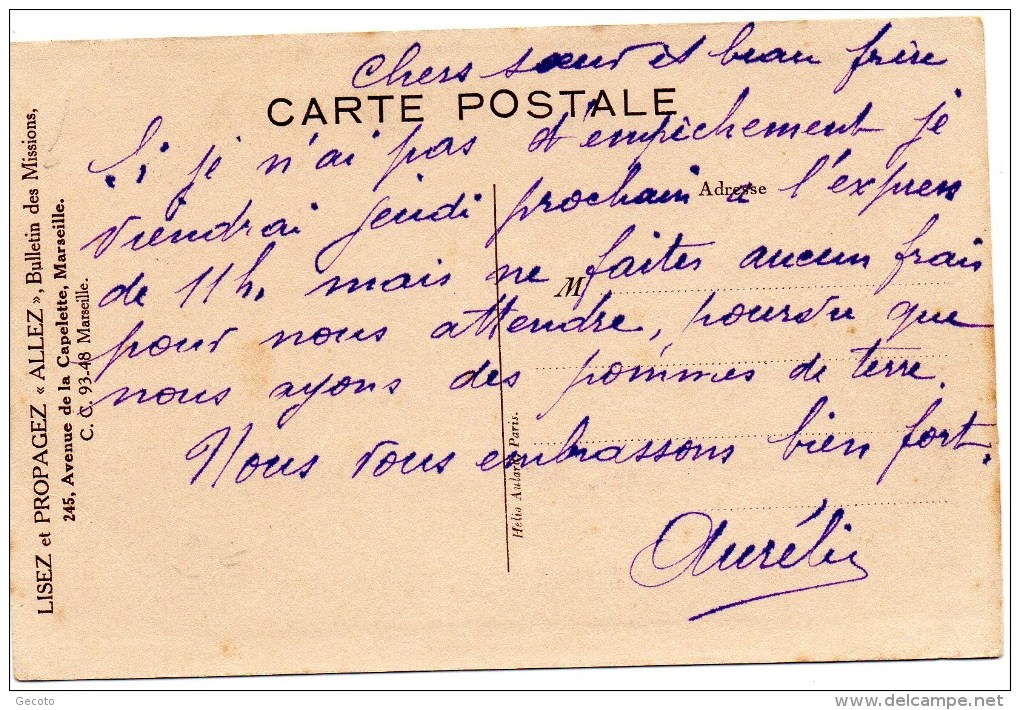 Chers sœur et beau frère
CARTE POSTALE
Si je n'ai pas d'empêchement je
viendrai jeudi prochain à l'express
Adresse
de 11h, mais ne faites aucun frais
M
pour nous attendre, pourvu que
nous ayons des pommes de terre.
Nous vous embrassons bien fort.
Aurélie
LISEZ et PROPAGEZ « ALLEZ », Bulletin des Missions,
245, Avenue de la Capelette, Marseille.
C. C. 93-48 Marseille.
Hélio Aulard, Paris.
Gecoto
www.delcampe.net